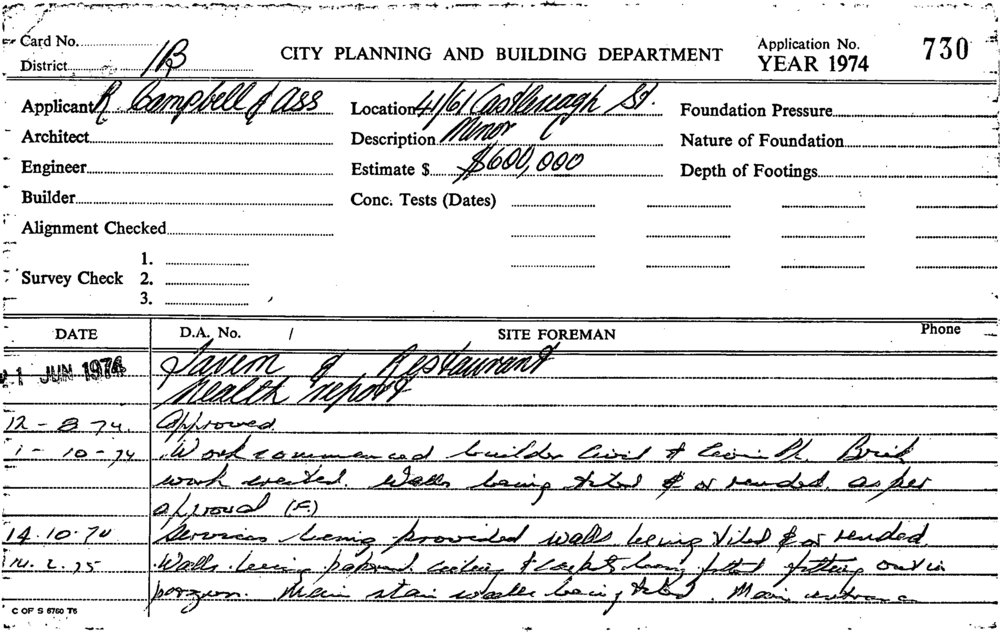 Card No.
District 1B
CITY PLANNING AND BUILDING DEPARTMENT
Application No. 730
YEAR 1974
Applicant R. Campbell & Ass
Location 41/61 Castlereagh St.
Foundation Pressure
Architect
Description Minor C
Nature of Foundation
Engineer
Estimate $ $600,000
Depth of Footings
Builder
Conc. Tests (Dates)
Alignment Checked
1.
Survey Check 2.
3.
DATE D.A. No. / SITE FOREMAN Phone
1 JUN 1974 Tavern & Restaurant
Health report
12 - 8 74. Approved
1 - 10 - 74 Work commenced builder Civil & Civic Brick
work erected. Walls being tiled & or rended. as per
approval (F.)
14.10.74 Services being provided walls being tiled & or rended
14.2.75 Walls being papered. ceiling & carpets being fitted fitting out in
Main stair walls being tiled. Main entrance
C OF S 6760 T6